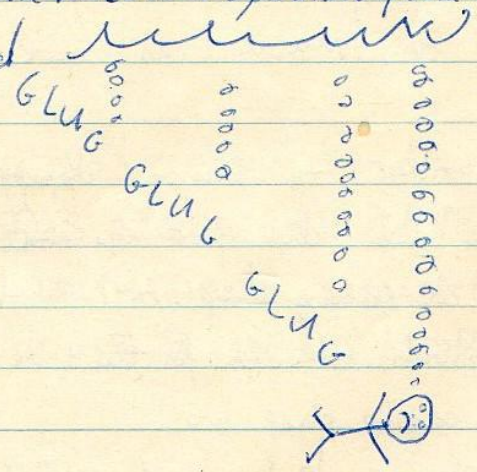 GLUG
GLUG
GLUG